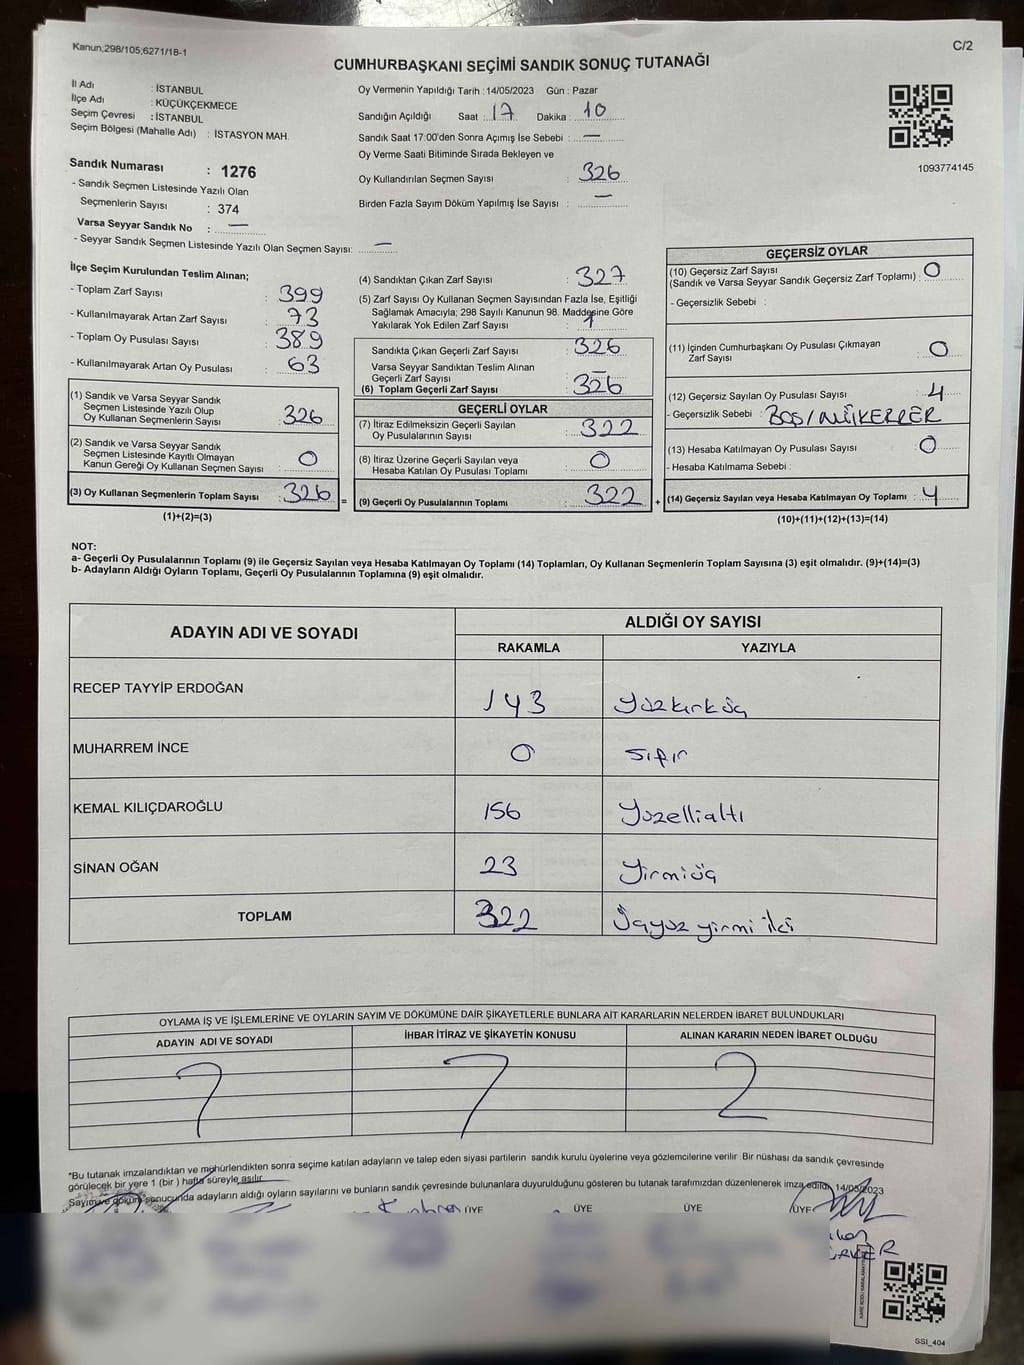 Kanun;298/105;6271/18-1
C/2
CUMHURBAŞKANI SEÇİMİ SANDIK SONUÇ TUTANAĞI
İl Adı : İSTANBUL
İlçe Adı : KÜÇÜKÇEKMECE
Seçim Çevresi : İSTANBUL
Seçim Bölgesi (Mahalle Adı) : İSTASYON MAH.
Sandık Numarası : 1276
- Sandık Seçmen Listesinde Yazılı Olan
Seçmenlerin Sayısı : 374
Varsa Seyyar Sandık No : —
- Seyyar Sandık Seçmen Listesinde Yazılı Olan Seçmen Sayısı: —
Oy Vermenin Yapıldığı Tarih : 14/05/2023 Gün : Pazar
Sandığın Açıldığı Saat : 17 Dakika : 10
Sandık Saat 17:00'den Sonra Açımış İse Sebebi : —
Oy Verme Saati Bitiminde Sırada Bekleyen ve
Oy Kullandırılan Seçmen Sayısı : 326
Birden Fazla Sayım Döküm Yapılmış İse Sayısı : —
1093774145
İlçe Seçim Kurulundan Teslim Alınan;
- Toplam Zarf Sayısı : 399
- Kullanılmayarak Artan Zarf Sayısı : 73
- Toplam Oy Pusulası Sayısı : 389
- Kullanılmayarak Artan Oy Pusulası : 63
(1) Sandık ve Varsa Seyyar Sandık
Seçmen Listesinde Yazılı Olup
Oy Kullanan Seçmenlerin Sayısı : 326
(2) Sandık ve Varsa Seyyar Sandık
Seçmen Listesinde Kayıtlı Olmayan
Kanun Gereği Oy Kullanan Seçmen Sayısı : 0
(3) Oy Kullanan Seçmenlerin Toplam Sayısı : 326 =
(1)+(2)=(3)
(4) Sandıktan Çıkan Zarf Sayısı : 327
(5) Zarf Sayısı Oy Kullanan Seçmen Sayısından Fazla İse, Eşitliği
Sağlamak Amacıyla; 298 Sayılı Kanunun 98. Maddesine Göre
Yakılarak Yok Edilen Zarf Sayısı : 1
Sandıkta Çıkan Geçerli Zarf Sayısı : 326
Varsa Seyyar Sandıktan Teslim Alınan
Geçerli Zarf Sayısı : —
(6) Toplam Geçerli Zarf Sayısı : 326
GEÇERLİ OYLAR
(7) İtiraz Edilmeksizin Geçerli Sayılan
Oy Pusulalarının Sayısı : 322
(8) İtiraz Üzerine Geçerli Sayılan veya
Hesaba Katılan Oy Pusulası Toplamı : 0
(9) Geçerli Oy Pusulalarının Toplamı : 322 +
GEÇERSİZ OYLAR
(10) Geçersiz Zarf Sayısı
(Sandık ve Varsa Seyyar Sandık Geçersiz Zarf Toplamı) : 0
- Geçersizlik Sebebi :
(11) İçinden Cumhurbaşkanı Oy Pusulası Çıkmayan
Zarf Sayısı : 0
(12) Geçersiz Sayılan Oy Pusulası Sayısı : 4
- Geçersizlik Sebebi : BOŞ/MÜKERRER
(13) Hesaba Katılmayan Oy Pusulası Sayısı : 0
- Hesaba Katılmama Sebebi :
(14) Geçersiz Sayılan veya Hesaba Katılmayan Oy Toplamı : 4
(10)+(11)+(12)+(13)=(14)
NOT:
a- Geçerli Oy Pusulalarının Toplamı (9) ile Geçersiz Sayılan veya Hesaba Katılmayan Oy Toplamı (14) Toplamları, Oy Kullanan Seçmenlerin Toplam Sayısına (3) eşit olmalıdır. (9)+(14)=(3)
b- Adayların Aldığı Oyların Toplamı, Geçerli Oy Pusulalarının Toplamına (9) eşit olmalıdır.
ADAYIN ADI VE SOYADI
ALDIĞI OY SAYISI
RAKAMLA YAZIYLA
RECEP TAYYİP ERDOĞAN 143 Yüzkırküç
MUHARREM İNCE 0 sıfır
KEMAL KILIÇDAROĞLU 156 Yüzellialtı
SİNAN OĞAN 23 Yirmiüç
TOPLAM 322 Üçyüz yirmi iki
OYLAMA İŞ VE İŞLEMLERİNE VE OYLARIN SAYIM VE DÖKÜMÜNE DAİR ŞİKAYETLERLE BUNLARA AİT KARARLARIN NELERDEN İBARET BULUNDUKLARI
ADAYIN ADI VE SOYADI
İHBAR İTİRAZ VE ŞİKAYETİN KONUSU
ALINAN KARARIN NEDEN İBARET OLDUĞU
*Bu tutanak imzalandıktan ve mühürlendikten sonra seçime katılan adayların ve talep eden siyasi partilerin sandık kurulu üyelerine veya gözlemcilerine verilir. Bir nüshası da sandık çevresinde
görülecek bir yere 1 (bir) hafta süreyle asılır.
Sayım ve döküm sonucunda adayların aldığı oyların sayılarını ve bunların sandık çevresinde bulunanlara duyurulduğunu gösteren bu tutanak tarafımızdan düzenlenerek imza edildi. 14/05/2023
ÜYE ÜYE ÜYE ÜYE
SSI_404